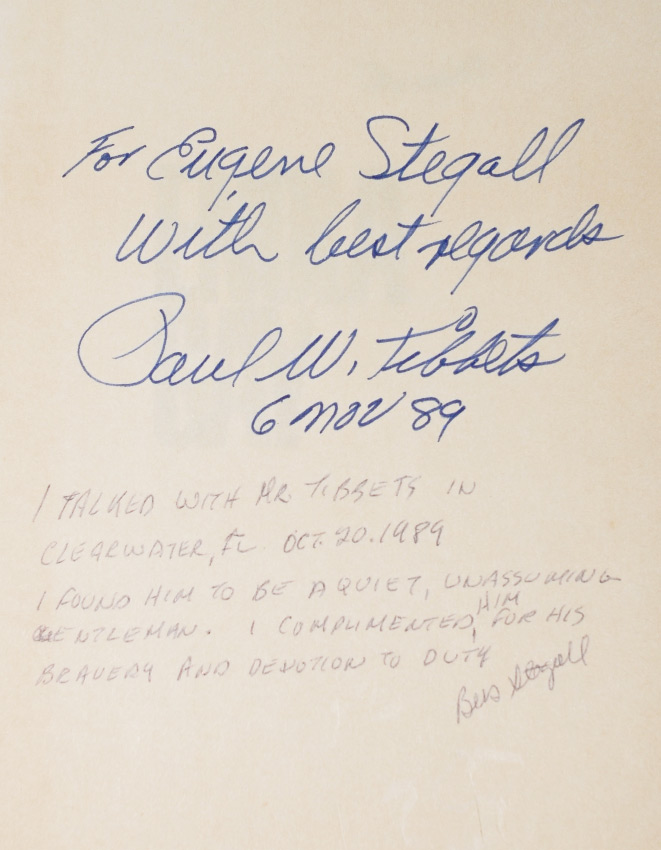 For Eugene Stegall
With best regards
Paul W. Tibbets
6 NOV 89
I TALKED WITH MR TIBBETS IN
CLEARWATER, FL. OCT. 20. 1989
I FOUND HIM TO BE A QUIET, UNASSUMING
GENTLEMAN. I COMPLIMENTED HIM FOR HIS
BRAVERY AND DEVOTION TO DUTY
Stegall